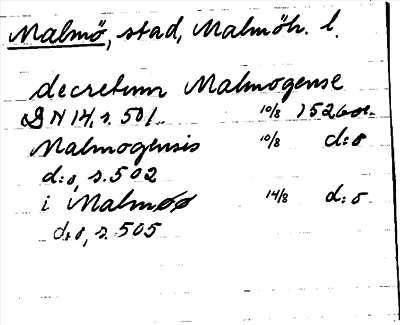 Malmö, stad, Malmöh. l.
decretum Malmogense
D N 14, s. 501 10/8 1526 or.
Malmogensis 10/8 d:o
d:o, s. 502
i Malmøø 14/8 d:o
d:o, s. 505